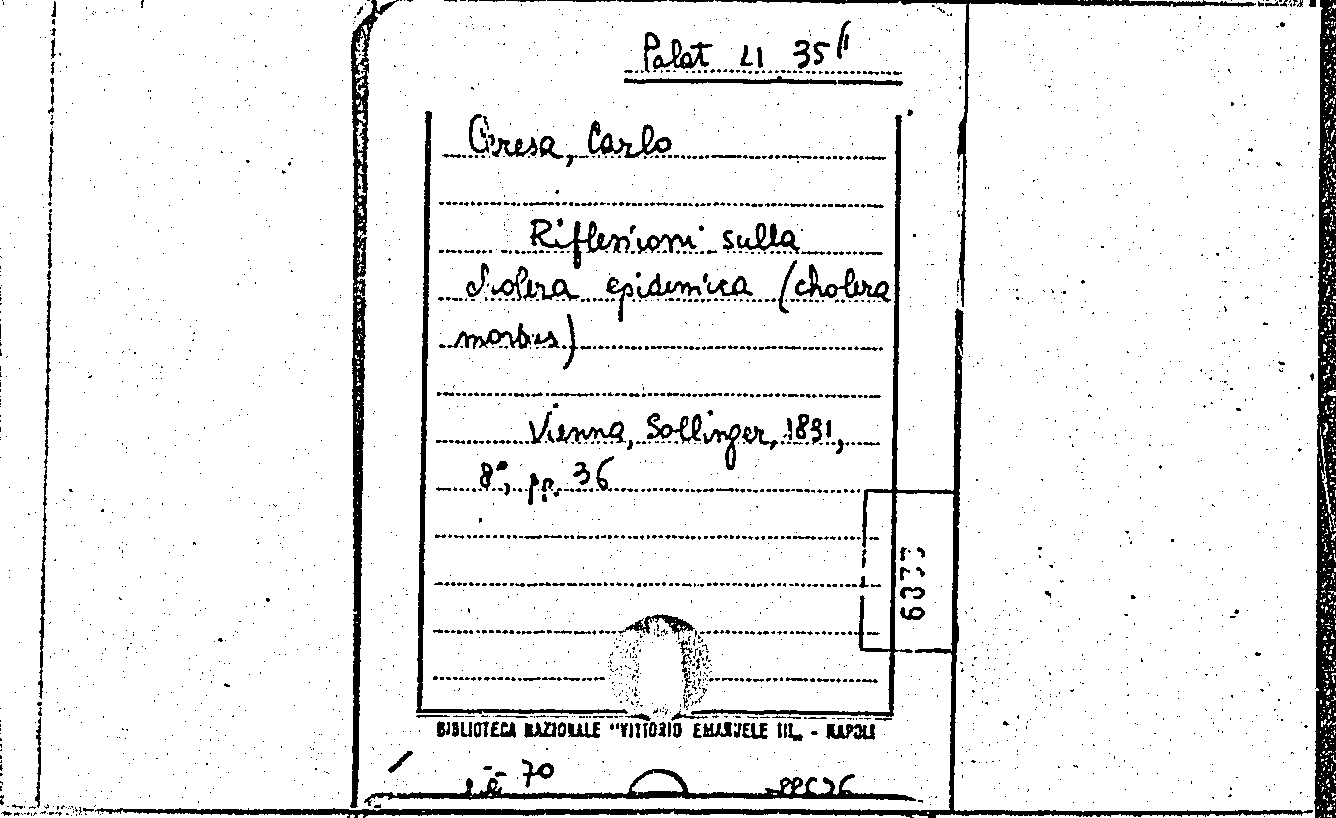 Palat LI 35
Ceresa, Carlo
Riflessioni sulla
cholera epidemica (cholera
morbus)
Vienna, Sollinger, 1831,
8°, pp. 36
6377
BIBLIOTECA NAZIONALE "VITTORIO EMANUELE III„ - NAPOLI
70